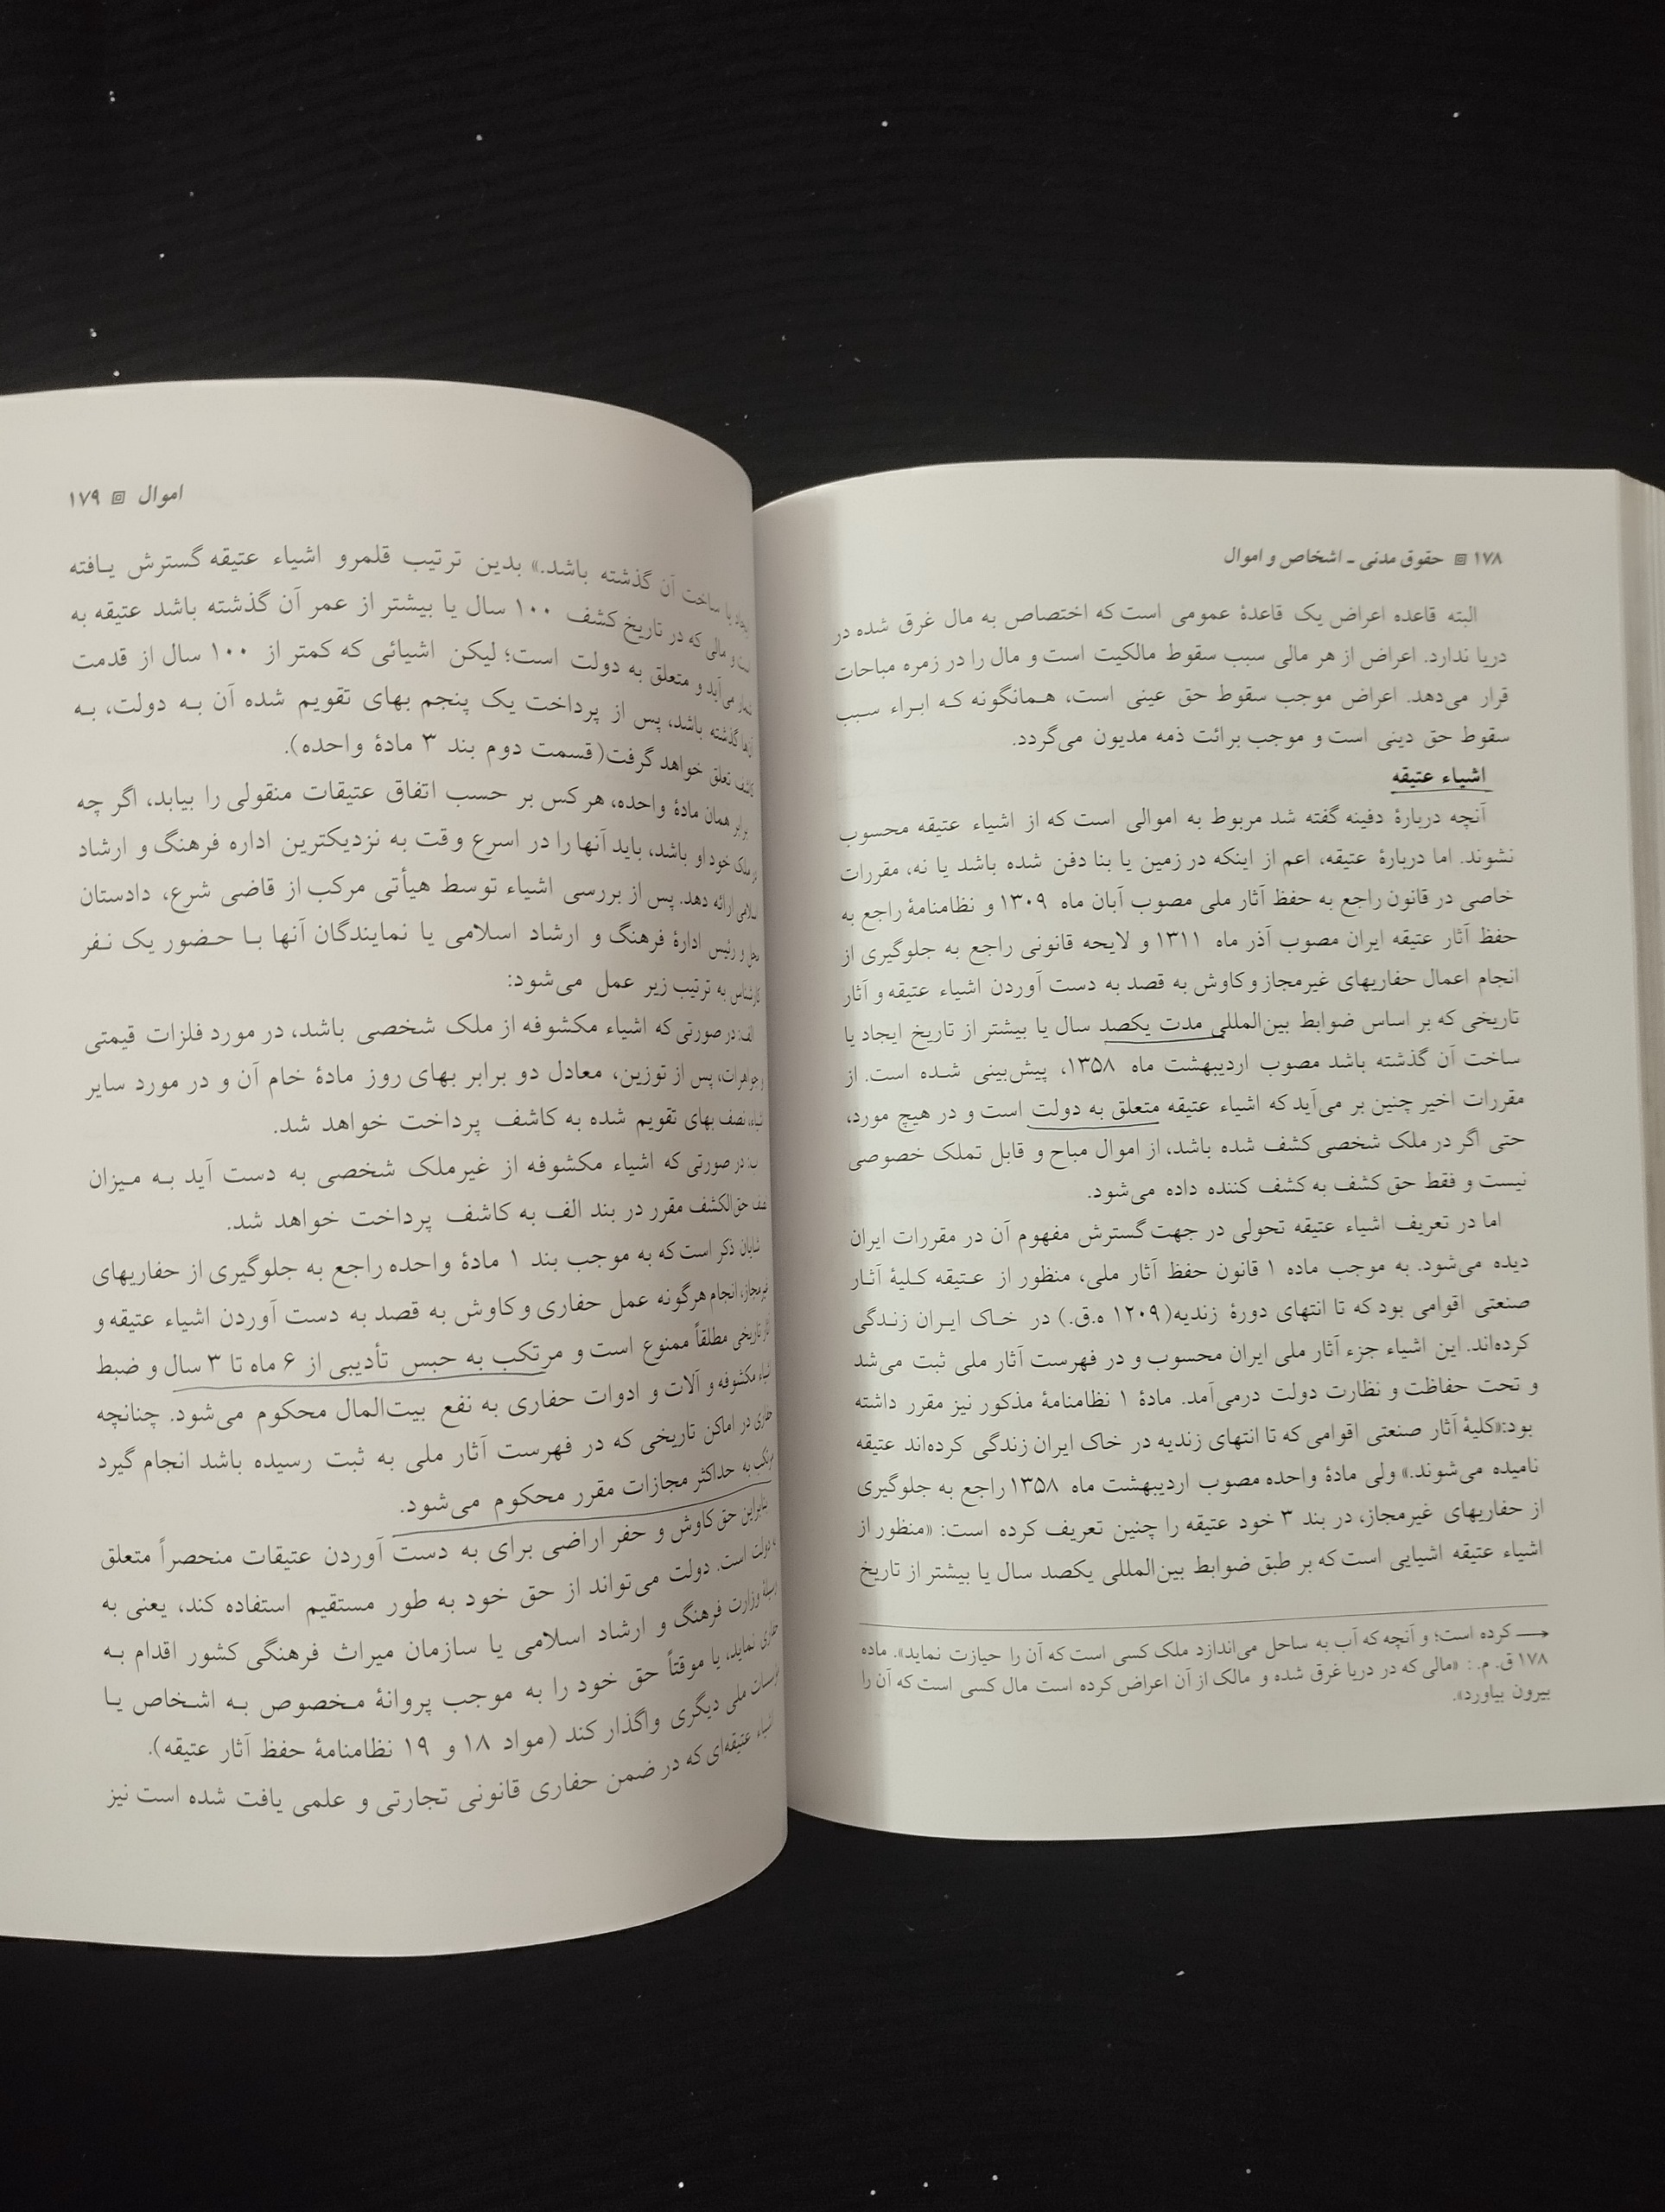 ۱۷۸ حقوق مدنی ـ اشخاص و اموال
البته قاعده اعراض یک قاعدهٔ عمومی است که اختصاص به مال غرق شده در
دریا ندارد. اعراض از هر مالی سبب سقوط مالکیت است و مال را در زمره مباحات
قرار می‌دهد. اعراض موجب سقوط حق عینی است، همانگونه که ابراء سبب
سقوط حق دینی است و موجب برائت ذمه مدیون می‌گردد.
اشیاء عتیقه
آنچه دربارهٔ دفینه گفته شد مربوط به اموالی است که از اشیاء عتیقه محسوب
نشوند. اما دربارهٔ عتیقه، اعم از اینکه در زمین یا بنا دفن شده باشد یا نه، مقررات
خاصی در قانون راجع به حفظ آثار ملی مصوب آبان ماه ۱۳۰۹ و نظامنامهٔ راجع به
حفظ آثار عتیقه ایران مصوب آذر ماه ۱۳۱۱ و لایحه قانونی راجع به جلوگیری از
انجام اعمال حفاریهای غیرمجاز و کاوش به قصد به دست آوردن اشیاء عتیقه و آثار
تاریخی که بر اساس ضوابط بین‌المللی مدت یکصد سال یا بیشتر از تاریخ ایجاد یا
ساخت آن گذشته باشد مصوب اردیبهشت ماه ۱۳۵۸، پیش‌بینی شده است. از
مقررات اخیر چنین بر می‌آید که اشیاء عتیقه متعلق به دولت است و در هیچ مورد،
حتی اگر در ملک شخصی کشف شده باشد، از اموال مباح و قابل تملک خصوصی
نیست و فقط حق کشف به کشف کننده داده می‌شود.
اما در تعریف اشیاء عتیقه تحولی در جهت گسترش مفهوم آن در مقررات ایران
دیده می‌شود. به موجب ماده ۱ قانون حفظ آثار ملی، منظور از عتیقه کلیهٔ آثار
صنعتی اقوامی بود که تا انتهای دورهٔ زندیه (۱۲۰۹ ه‍.ق.) در خاک ایران زندگی
کرده‌اند. این اشیاء جزء آثار ملی ایران محسوب و در فهرست آثار ملی ثبت می‌شد
و تحت حفاظت و نظارت دولت درمی‌آمد. مادهٔ ۱ نظامنامهٔ مذکور نیز مقرر داشته
بود:«کلیهٔ آثار صنعتی اقوامی که تا انتهای زندیه در خاک ایران زندگی کرده‌اند عتیقه
نامیده می‌شوند.» ولی مادهٔ واحده مصوب اردیبهشت ماه ۱۳۵۸ راجع به جلوگیری
از حفاریهای غیرمجاز، در بند ۳ خود عتیقه را چنین تعریف کرده است: «منظور از
اشیاء عتیقه اشیایی است که بر طبق ضوابط بین‌المللی یکصد سال یا بیشتر از تاریخ
کرده است؛ و آنچه که آب به ساحل می‌اندازد ملک کسی است که آن را حیازت نماید». ماده
۱۷۸ ق. م. : «مالی که در دریا غرق شده و مالک از آن اعراض کرده است مال کسی است که آن را
بیرون بیاورد».
اموال ۱۷۹
یا ساخت آن گذشته باشد.» بدین ترتیب قلمرو اشیاء عتیقه گسترش یافته
و مالی که در تاریخ کشف ۱۰۰ سال یا بیشتر از عمر آن گذشته باشد عتیقه به
شمار می‌آید و متعلق به دولت است؛ لیکن اشیائی که کمتر از ۱۰۰ سال از قدمت
آنها گذشته باشد، پس از پرداخت یک پنجم بهای تقویم شده آن به دولت، به
کاشف تعلق خواهد گرفت (قسمت دوم بند ۳ مادهٔ واحده).
برابر همان مادهٔ واحده، هر کس بر حسب اتفاق عتیقات منقولی را بیابد، اگر چه
در ملک خود او باشد، باید آنها را در اسرع وقت به نزدیکترین اداره فرهنگ و ارشاد
اسلامی ارائه دهد. پس از بررسی اشیاء توسط هیأتی مرکب از قاضی شرع، دادستان
محل و رئیس ادارهٔ فرهنگ و ارشاد اسلامی یا نمایندگان آنها با حضور یک نفر
کارشناس به ترتیب زیر عمل می‌شود:
الف: در صورتی که اشیاء مکشوفه از ملک شخصی باشد، در مورد فلزات قیمتی
و جواهرات، پس از توزین، معادل دو برابر بهای روز مادهٔ خام آن و در مورد سایر
اشیاء، نصف بهای تقویم شده به کاشف پرداخت خواهد شد.
ب: در صورتی که اشیاء مکشوفه از غیرملک شخصی به دست آید به میزان
نصف حق‌الکشف مقرر در بند الف به کاشف پرداخت خواهد شد.
شایان ذکر است که به موجب بند ۱ مادهٔ واحده راجع به جلوگیری از حفاریهای
غیرمجاز، انجام هرگونه عمل حفاری و کاوش به قصد به دست آوردن اشیاء عتیقه و
آثار تاریخی مطلقاً ممنوع است و مرتکب به حبس تأدیبی از ۶ ماه تا ۳ سال و ضبط
اشیاء مکشوفه و آلات و ادوات حفاری به نفع بیت‌المال محکوم می‌شود. چنانچه
حفاری در اماکن تاریخی که در فهرست آثار ملی به ثبت رسیده باشد انجام گیرد
مرتکب به حداکثر مجازات مقرر محکوم می‌شود.
بنابراین حق کاوش و حفر اراضی برای به دست آوردن عتیقات منحصراً متعلق
به دولت است. دولت می‌تواند از حق خود به طور مستقیم استفاده کند، یعنی به
وسیلهٔ وزارت فرهنگ و ارشاد اسلامی یا سازمان میراث فرهنگی کشور اقدام به
حفاری نماید، یا موقتاً حق خود را به موجب پروانهٔ مخصوص به اشخاص یا
مؤسسات ملی دیگری واگذار کند (مواد ۱۸ و ۱۹ نظامنامهٔ حفظ آثار عتیقه).
اشیاء عتیقه‌ای که در ضمن حفاری قانونی تجارتی و علمی یافت شده است نیز